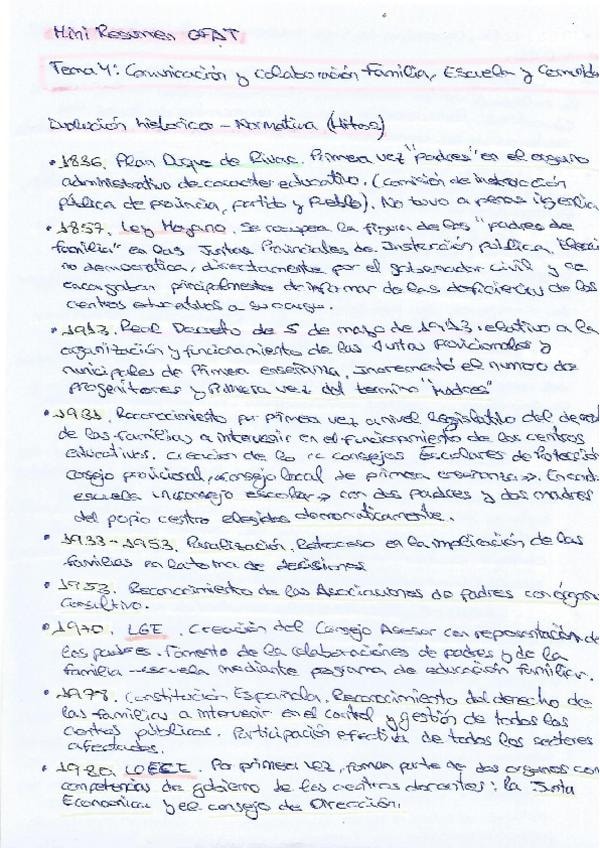 Mini Resumen OFAT
Tema 4: Comunicación y colaboración Familia, Escuela y Comunida
Evolución historica - Normativa (Hitos)
• 1836. Plan Duque de Rivas. Primera vez "padres" en el organo
administrativo de caracter educativo. (comisión de instrucción
pública de provincia, partido y Pueblo). No tuvo a penas
• 1857. Ley Moyano. Se recupera la figura de los "padres de
familia" en las Juntas Provinciales de Instrucción pública.
no democratica, directamente por el gobernador civil y se
encargaban principalmente de informar de las deficiencias de los
centros educativos a su cargo.
• 1913. Real Decreto de 5 de mayo de 1913 relativo a la
organización y funcionamiento de las Juntas provicionales y
municipales de Primera enseñanza, Incrementó el numero de
progenitores y Primera vez del termino "Madres"
• 1931. Reconocimiento por primera vez a nivel legislativo del
de las familias a intervenir en el funcionamiento de los centros
educativos. creación de lo consejos Escolares de Protección
consejo provicional, consejo local de primera enseñanza». En cada
escuela «consejo escolar» con dos padres y dos madres
del propio centro elegidos democraticamente.
• 1933-1953. Paralización. Retroceso en la implicación de las
familias en la toma de decisiones
• 1953. Reconocimiento de las Asociaciones de padres con órgano
Consultivo.
• 1970. LGE. Creación del Consejo Asesor con representación de
los padres. Fomento de la colaboraciones de padres y de la
familia - escuela mediante programa de educación familiar.
• 1978. Constitución Española. Reconocimiento del derecho de
las familias a intervenir en el control y gestión de todos los
centros públicos. Participación efectiva de todos los sectores
afectados.
• 1980 LOECE. Por primera vez, forman parte de dos organos con
competencias de gobierno de los centros docentes: la Junta
Economica y el consejo de Dirección.